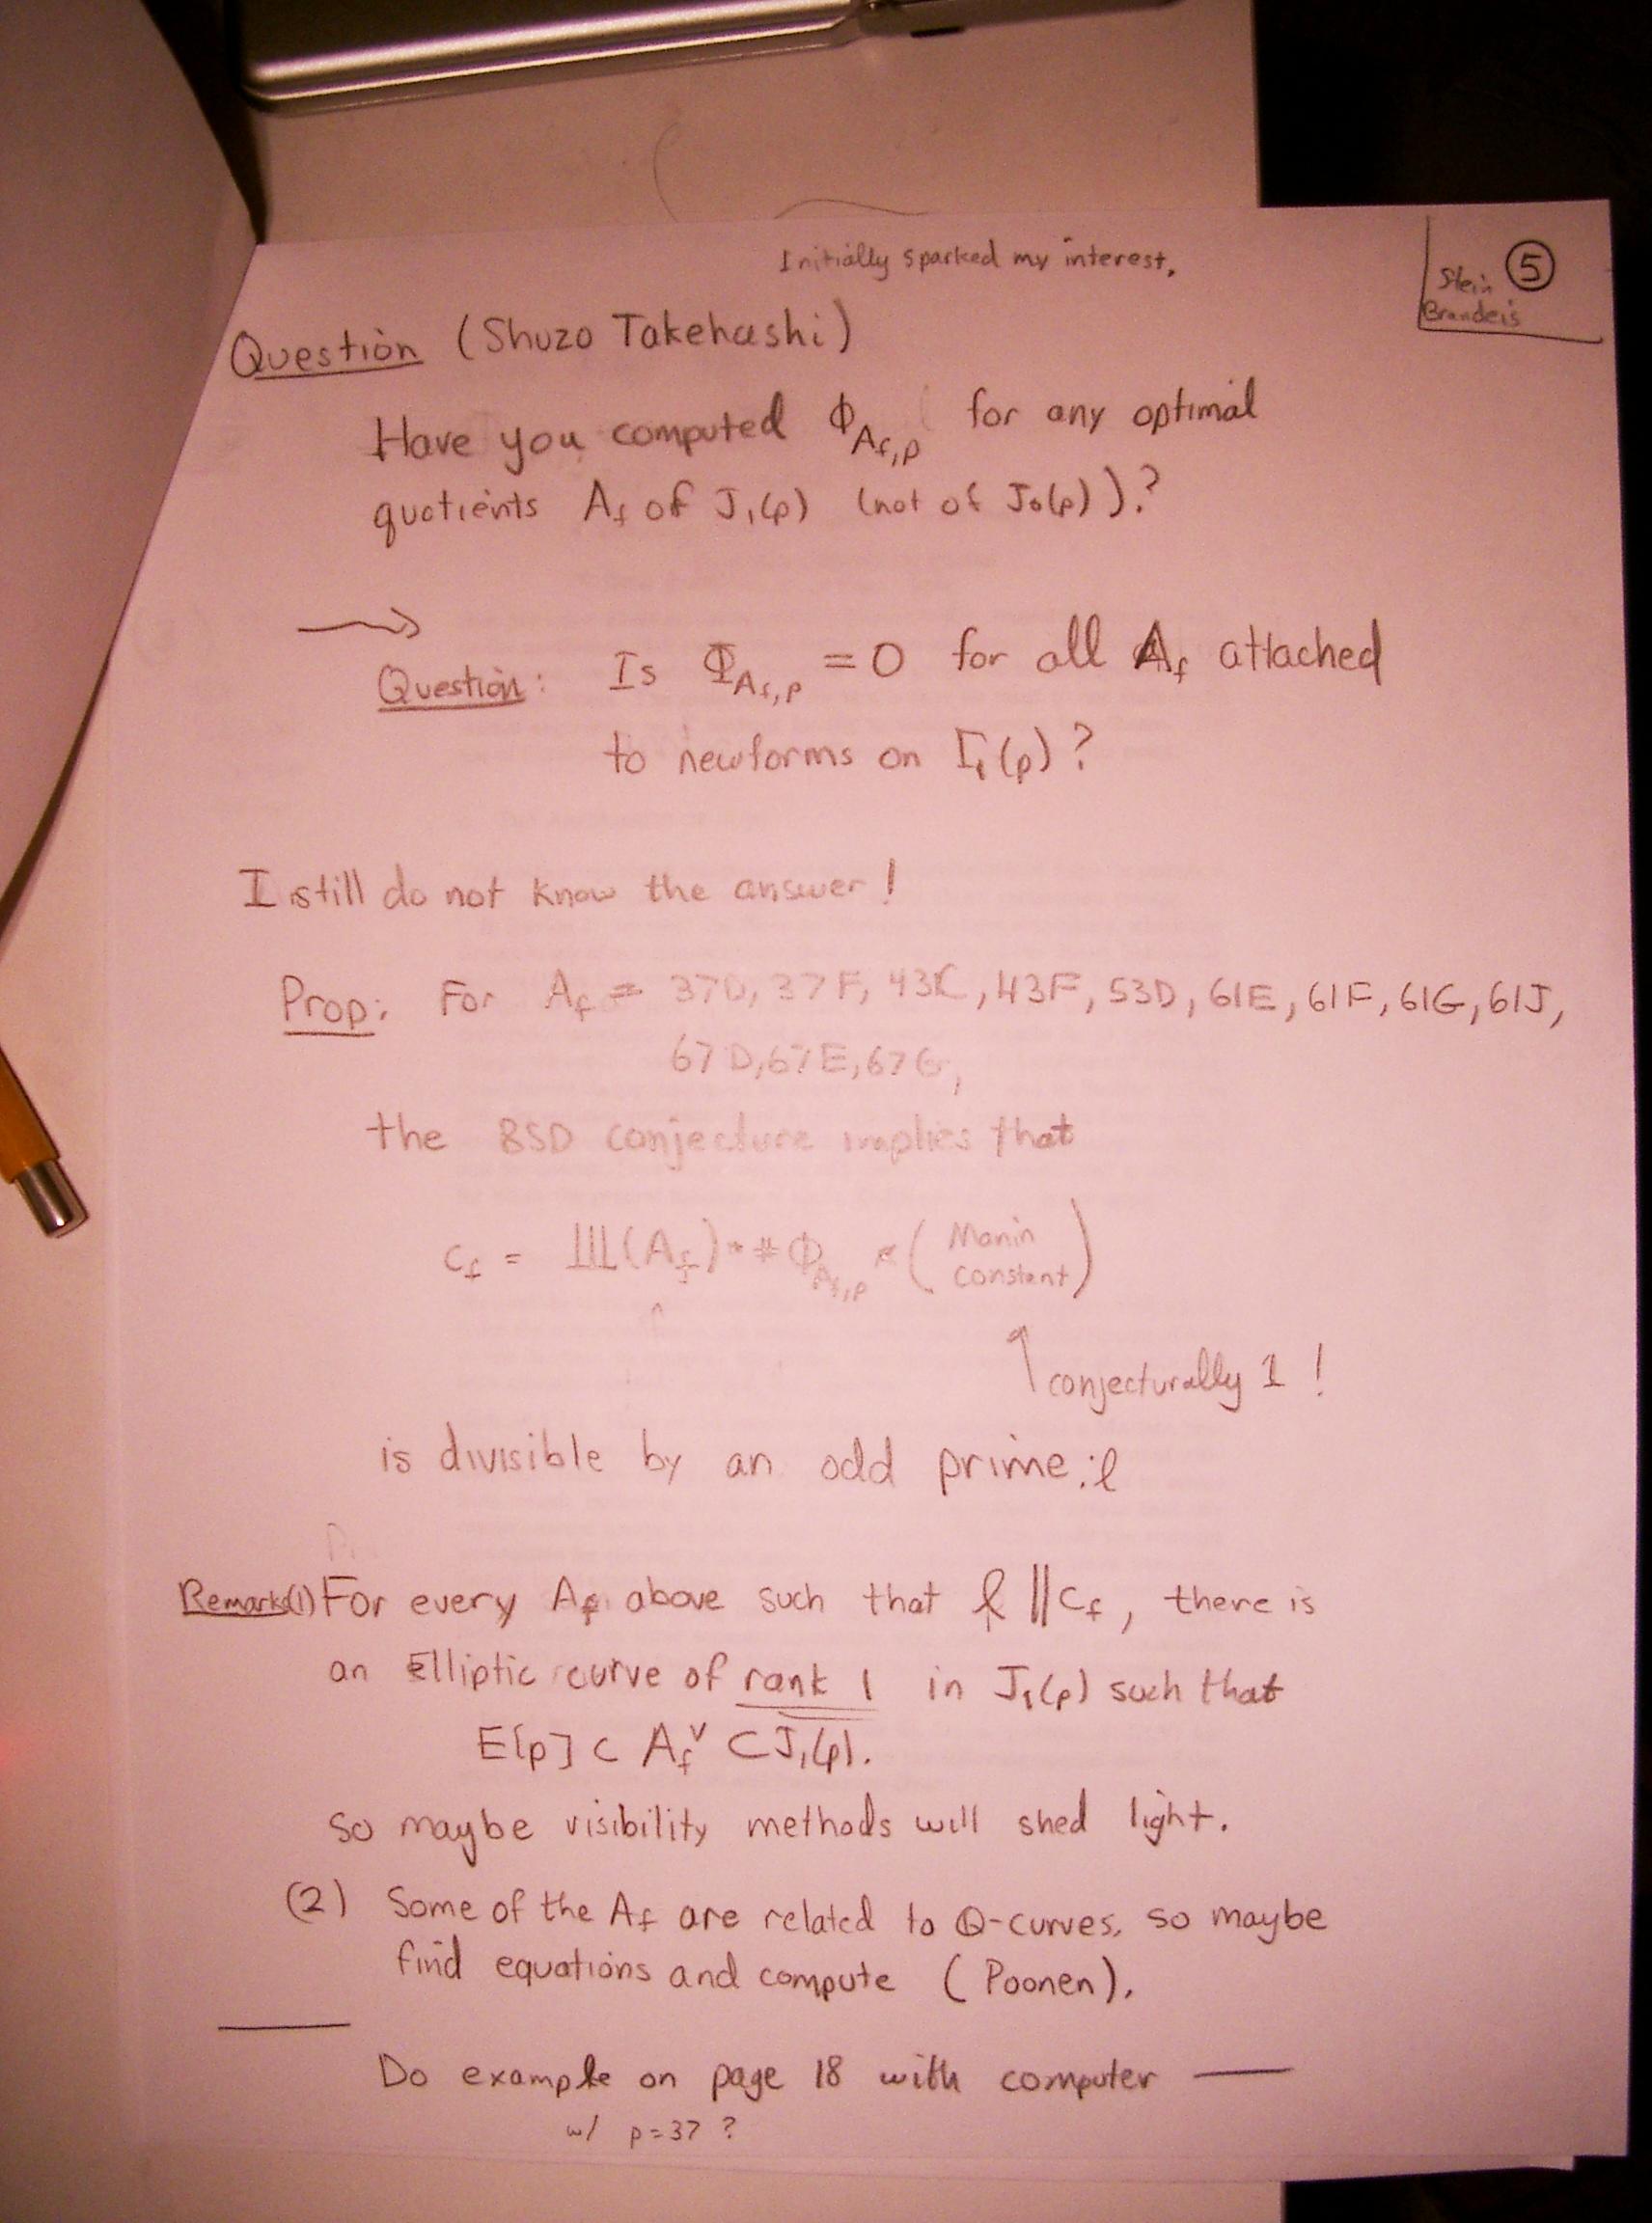 Initially sparked my interest.
Stein ⑤
Brandeis
Question (Shuzo Takehashi)
Have you computed Φ_{A_f,p} for any optimal
quotients A_f of J₁(p) (not of J₀(p))?
→
Question: Is Φ_{A_f,p} = 0 for all A_f attached
to newforms on Γ₁(p)?
I still do not know the answer!
Prop: For A_f = 37D, 37F, 43C, 43F, 53D, 61E, 61F, 61G, 61J,
67D, 67E, 67G,
the BSD conjecture implies that
c_f = Ш(A_f) * #Φ_{A_f,p} * (Manin constant)
↑ conjecturally 1!
is divisible by an odd prime: ℓ
Remarks (1) For every A_f above such that ℓ || c_f, there is
an Elliptic curve of rank 1 in J₁(p) such that
E[p] ⊂ A_f^∨ ⊂ J₁(p).
so maybe visibility methods will shed light.
(2) Some of the A_f are related to Q-curves, so maybe
find equations and compute (Poonen).
Do example on page 18 with computer —
w/ p=37 ?